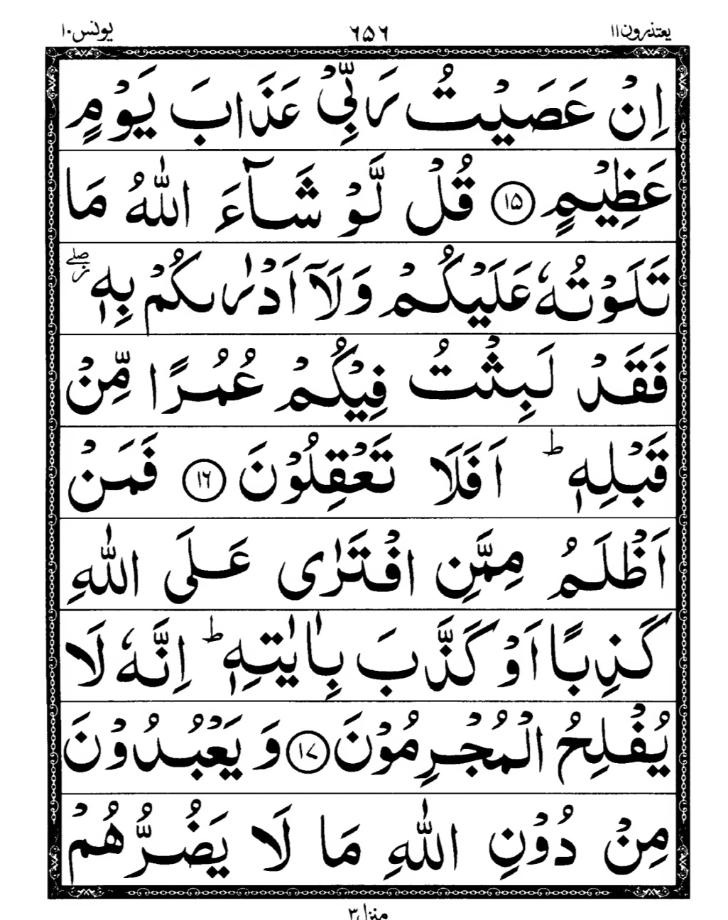 يعتذرون١١ ٦٥٦ يونس١٠
اِنۡ عَصَيۡتُ رَبِّىۡ عَذَابَ يَوۡمٍ
عَظِيۡمٍ ١٥ قُلْ لَّوۡ شَآءَ اللّٰهُ مَا
تَلَوۡتُهٗ عَلَيۡكُمۡ وَلَاۤ اَدۡرٰٮكُمۡ بِهٖ ۖ
فَقَدۡ لَبِثۡتُ فِيۡكُمۡ عُمُرًا مِّنۡ
قَبۡلِهٖ ؕ اَفَلَا تَعۡقِلُوۡنَ ١٦ فَمَنۡ
اَظۡلَمُ مِمَّنِ افۡتَرٰى عَلَى اللّٰهِ
كَذِبًا اَوۡ كَذَّبَ بِاٰيٰتِهٖ ؕ اِنَّهٗ لَا
يُفۡلِحُ الۡمُجۡرِمُوۡنَ ١٧ وَ يَعۡبُدُوۡنَ
مِنۡ دُوۡنِ اللّٰهِ مَا لَا يَضُرُّهُمۡ
منزل٣